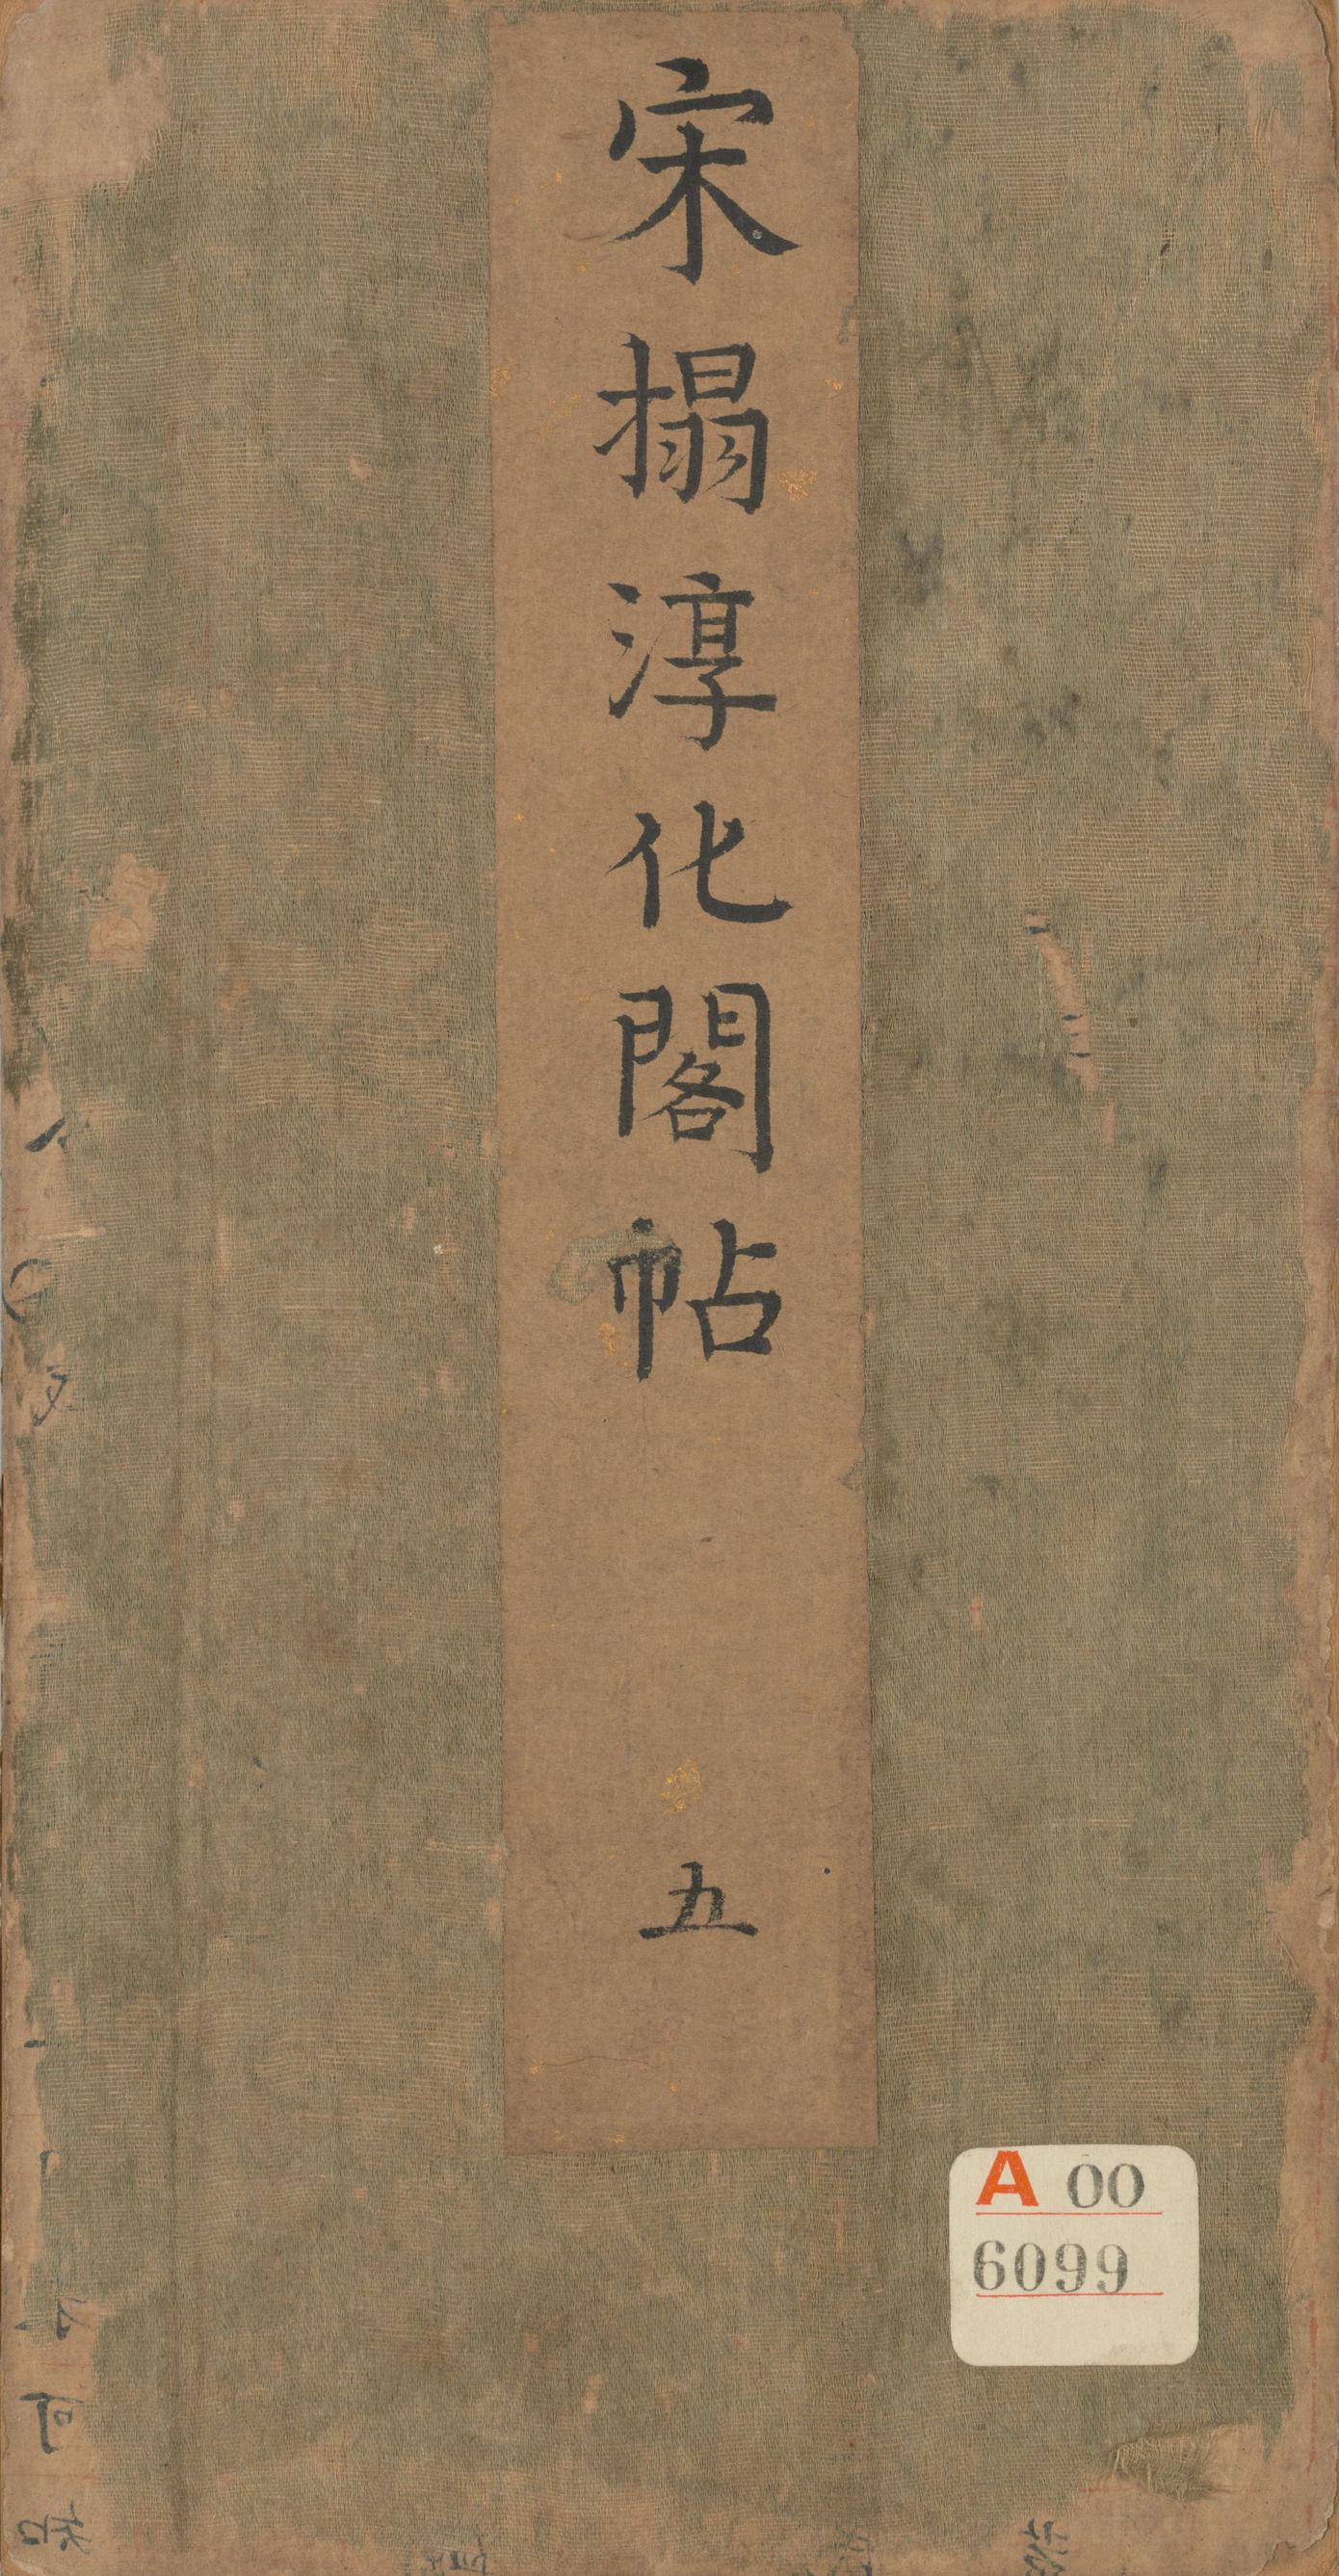 宋搨淳化閣帖 五
A 00
6099